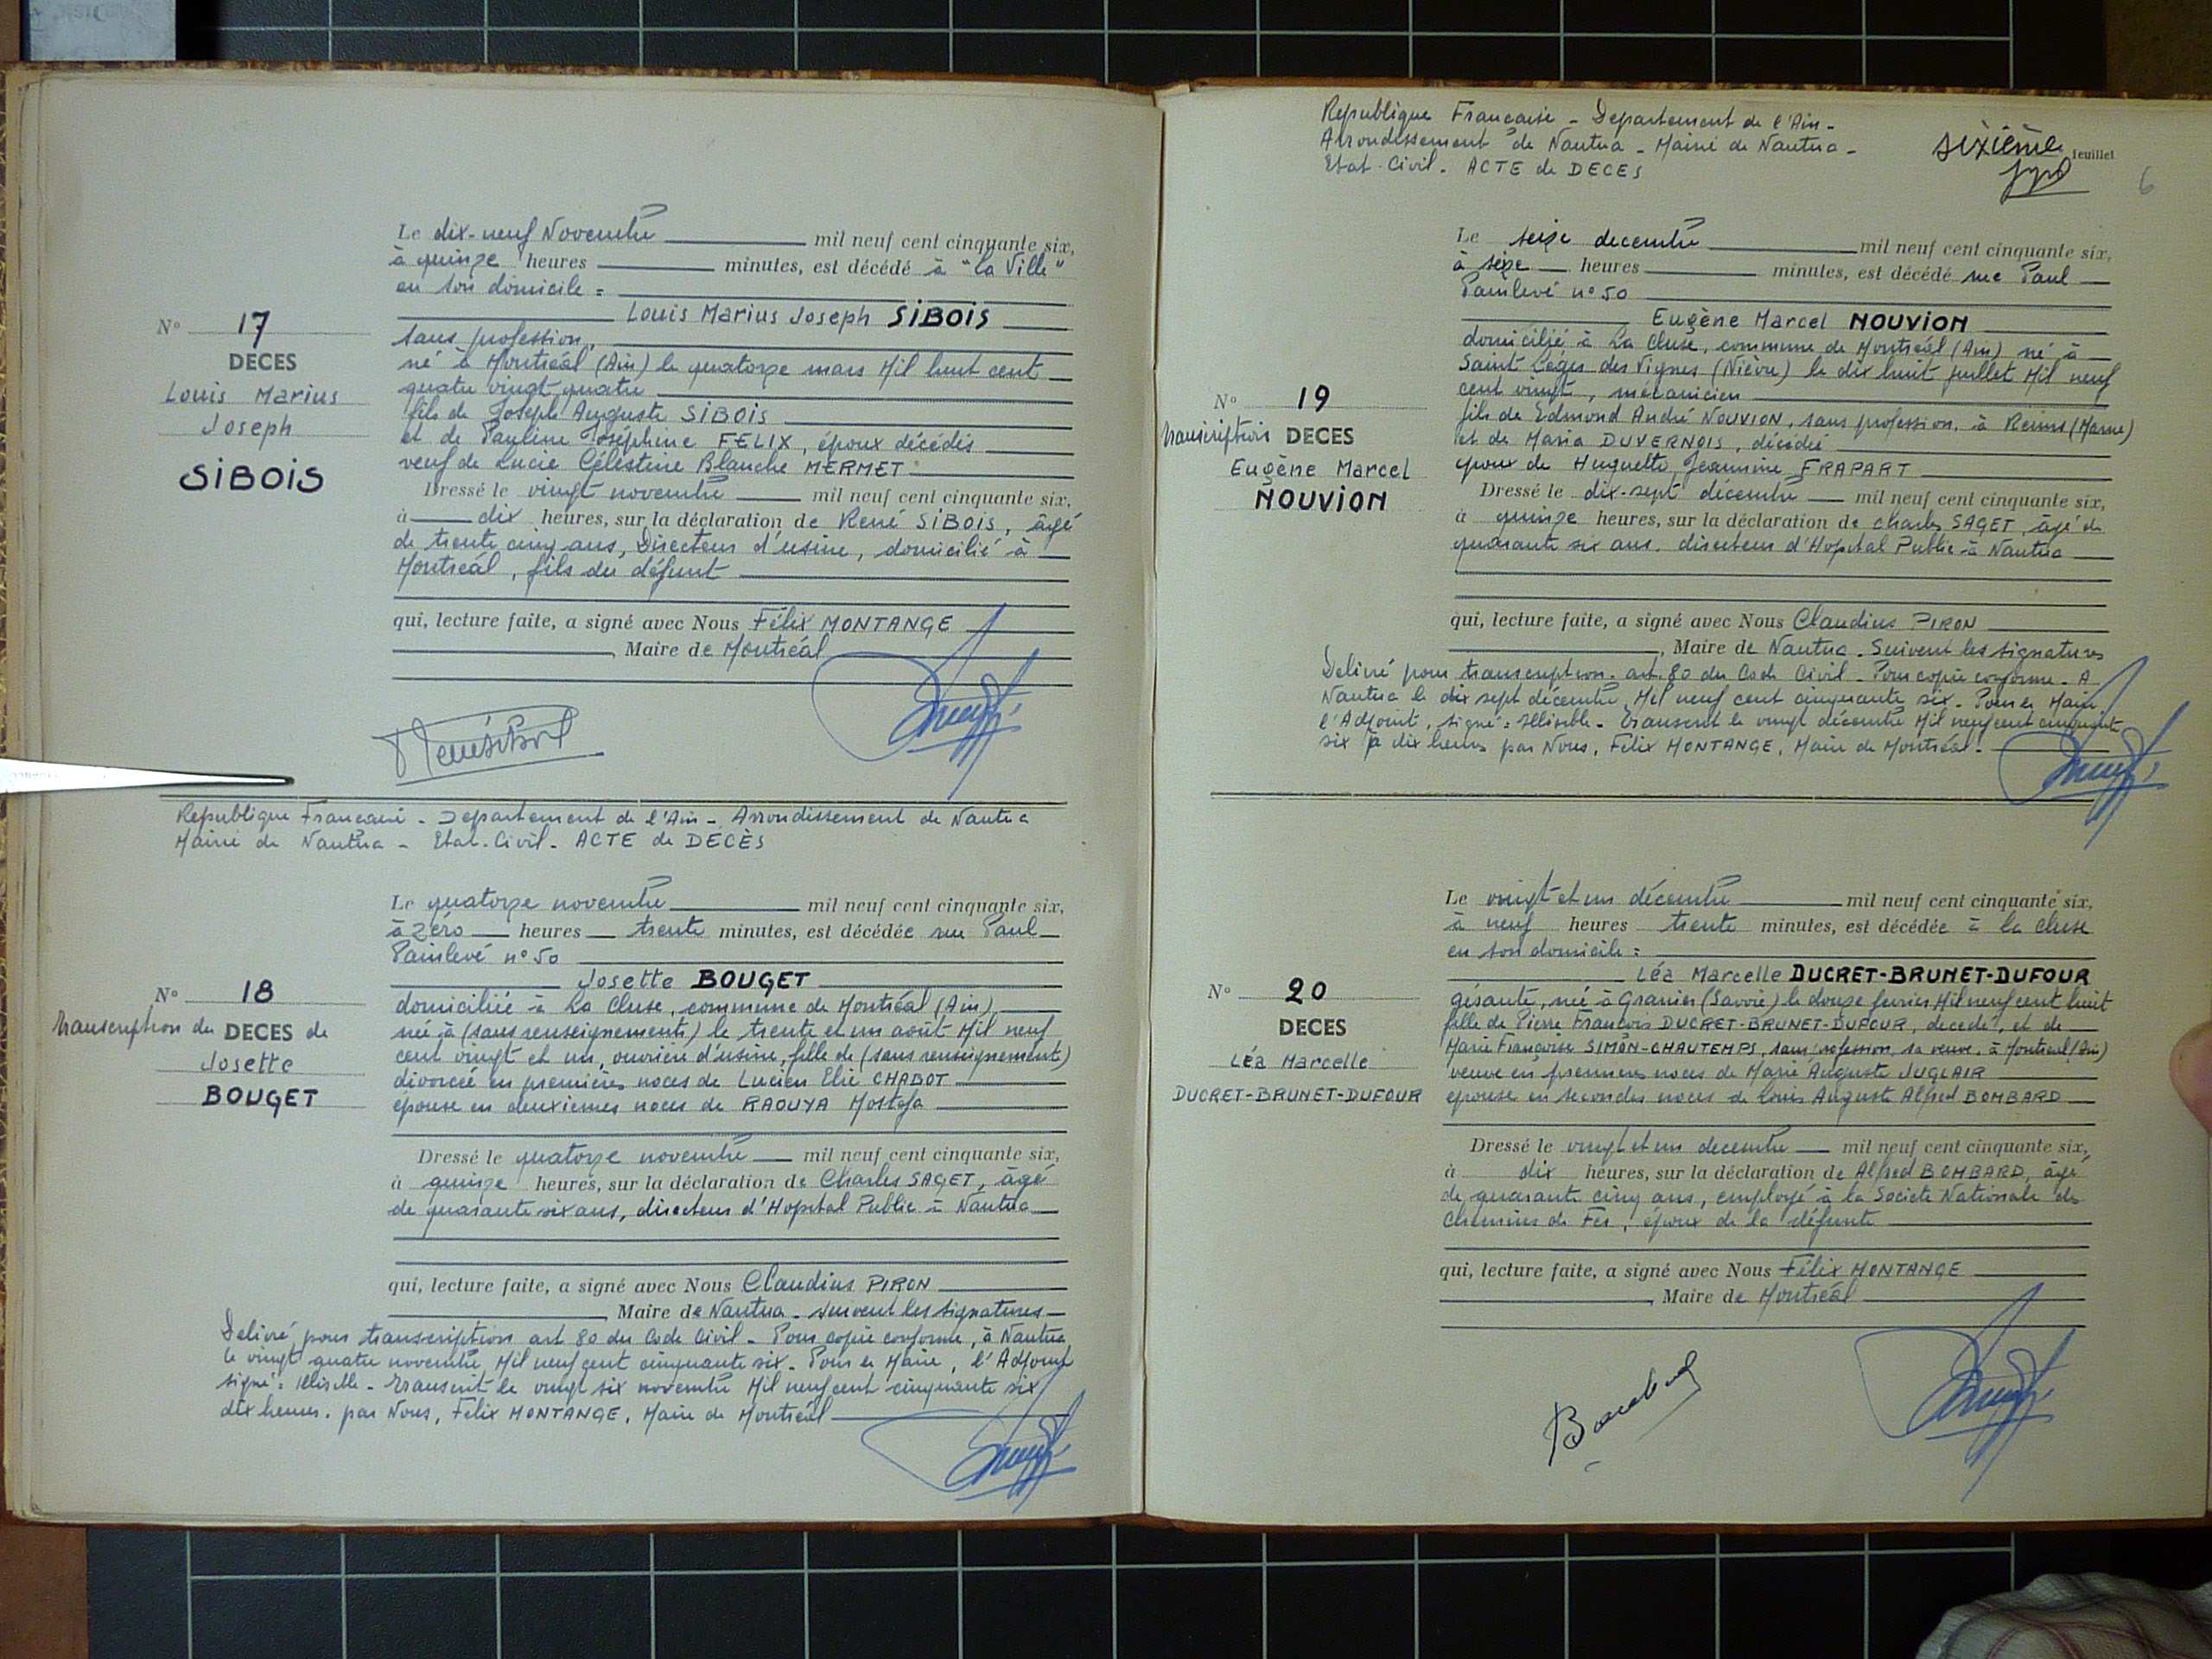 Le dix-neuf Novembre mil neuf cent cinquante six,
à quinze heures minutes, est décédé à "La Ville"
en son domicile =
Louis Marius Joseph SIBOIS
N° 17
DECES
Louis Marius
Joseph
SIBOIS
sans profession,
né à Montréal (Ain) le quatorze mars Mil huit cent
quatre vingt quatre
fils de Joseph Auguste SIBOIS
et de Pauline Joséphine FELIX, époux décédés
veuf de Lucie Célestine Blanche MERMET
Dressé le vingt novembre mil neuf cent cinquante six,
à dix heures, sur la déclaration de René SIBOIS, âgé
de trente cinq ans, Directeur d'usine, domicilié à
Montréal, fils du défunt
qui, lecture faite, a signé avec Nous Félix MONTANGE
, Maire de Montréal
Republique Francaise - Departement de l'Ain - Arrondissement de Nantua
Mairie de Nantua - Etat-Civil - ACTE de DECÈS
Le quatorze novembre mil neuf cent cinquante six,
à zéro heures trente minutes, est décédée rue Paul
Painlevé n° 50
Josette BOUGET
N° 18
Transcription du DECES de
Josette
BOUGET
domiciliée à La Cluse, commune de Montréal (Ain)
née à (sans renseignements) le trente et un août Mil neuf
cent vingt et un, ouvrière d'usine, fille de (sans renseignement)
divorcée en premières noces de Lucien Elie CHABOT
épouse en deuxiemes noces de RAOUYA Mostefa
Dressé le quatorze novembre mil neuf cent cinquante six,
à quinze heures, sur la déclaration de Charles SAGET, âgé
de quarante six ans, directeur d'Hopital Public à Nantua
qui, lecture faite, a signé avec Nous Claudius PIRON
, Maire de Nantua - suivent les signatures
Delivré pour transcription art 80 du Code Civil - Pour copie conforme, à Nantua
le vingt quatre novembre Mil neuf cent cinquante six - Pour le Maire, l'Adjoint
signé = illisible - Transcrit le vingt six novembre Mil neuf cent cinquante six
dix heures. par Nous, Félix MONTANGE, Maire de Montréal
Republique Francaise - Departement de l'Ain -
Arrondissement de Nantua - Mairie de Nantua -
Etat-Civil - ACTE de DECES
sixième feuillet
6
Le seize decembre mil neuf cent cinquante six,
à seize heures minutes, est décédé rue Paul
Painlevé n° 50
Eugène Marcel NOUVION
N° 19
Transcription DECES
Eugène Marcel
NOUVION
domicilié à La Cluse, commune de Montréal (Ain) né à
Saint Léger des Vignes (Nièvre) le dix huit juillet Mil neuf
cent vingt, mécanicien
fils de Edmond André NOUVION, sans profession, à Reims (Marne)
et de Maria DUVERNOIS, décédée
époux de Huguette Jeannine FRAPART
Dressé le dix-sept décembre mil neuf cent cinquante six,
à quinze heures, sur la déclaration de Charles SAGET, âgé de
quarante six ans. directeur d'Hopital Public à Nantua
qui, lecture faite, a signé avec Nous Claudius PIRON
, Maire de Nantua. Suivent les signatures
Delivré pour transcription. art. 80 du Code Civil - Pour copie conforme - A
Nantua le dix sept décembre Mil neuf cent cinquante six - Pour le Maire
l'Adjoint, signé = illisible - Transcrit le vingt décembre Mil neuf cent cinquante
six à dix heures par Nous, Félix MONTANGE, Maire de Montréal -
Le vingt et un décembre mil neuf cent cinquante six,
à neuf heures trente minutes, est décédée à la Cluse
en son domicile =
Léa Marcelle DUCRET-BRUNET-DUFOUR
N° 20
DECES
Léa Marcelle
DUCRET-BRUNET-DUFOUR
gérante, née à Granier (Savoie) le douze fevrier Mil neuf cent huit
fille de Pierre Francois DUCRET-BRUNET-DUFOUR, decedé, et de
Marie Françoise SIMON-CHAUTEMPS, sans profession, sa veuve. à Montreal (Ain)
veuve en premieres noces de Marie Auguste JUGLAIR
épouse en secondes noces de Louis Auguste Alfred BOMBARD
Dressé le vingt et un decembre mil neuf cent cinquante six,
à dix heures, sur la déclaration de Alfred BOMBARD, âgé
de quarante cinq ans, employé à la Societe Nationale des
Chemins de Fer, époux de la défunte
qui, lecture faite, a signé avec Nous Félix MONTANGE
, Maire de Montréal
Bombard